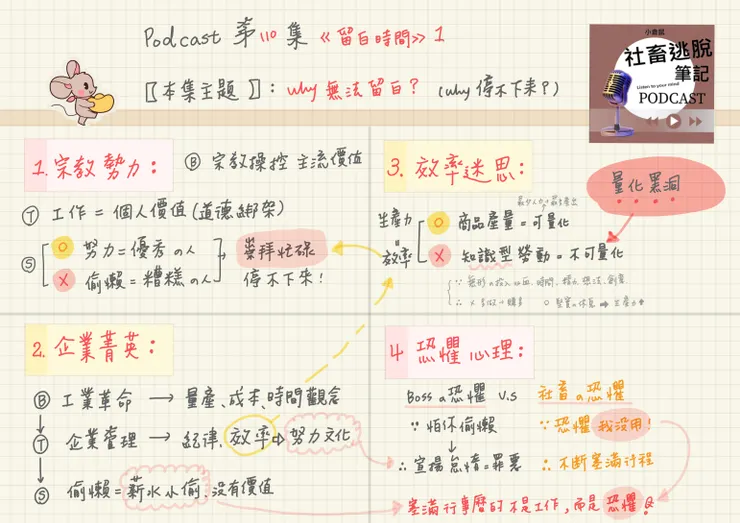 Podcast 第110集《留白時間》1
小倉鼠
社畜逃脫
筆記
Listen to your mind
PODCAST
〖本集主題〗：why 無法留白？（why 停不下來？）
1. 宗教勢力：
Ⓑ 宗教操控 主流價值
Ⓣ 工作＝個人價值(道德綁架)
Ⓢ
O 努力＝優秀の人
X 偷懶＝糟糕の人
崇拜忙碌
停不下來！
3. 效率迷思：
量化黑洞
生產力
=
效率
O 商品產量＝可量化
X 知識型勞動＝不可量化
2. 企業菁英：
Ⓑ 工業革命 → 量産、成本、時間觀念
Ⓣ 企業管理 → 紀律、效率⇨努力文化
Ⓢ 偷懶＝薪水小偷、沒有價值
4 恐懼心理：
Boss の恐懼 V.S 社畜の恐懼
∵ 怕你偷懶
∵ 恐懼 我沒用！
∴ 宣揚怠惰＝罪惡
∴ 不斷塞滿行程
塞滿行事曆的不是工作，而是 恐懼